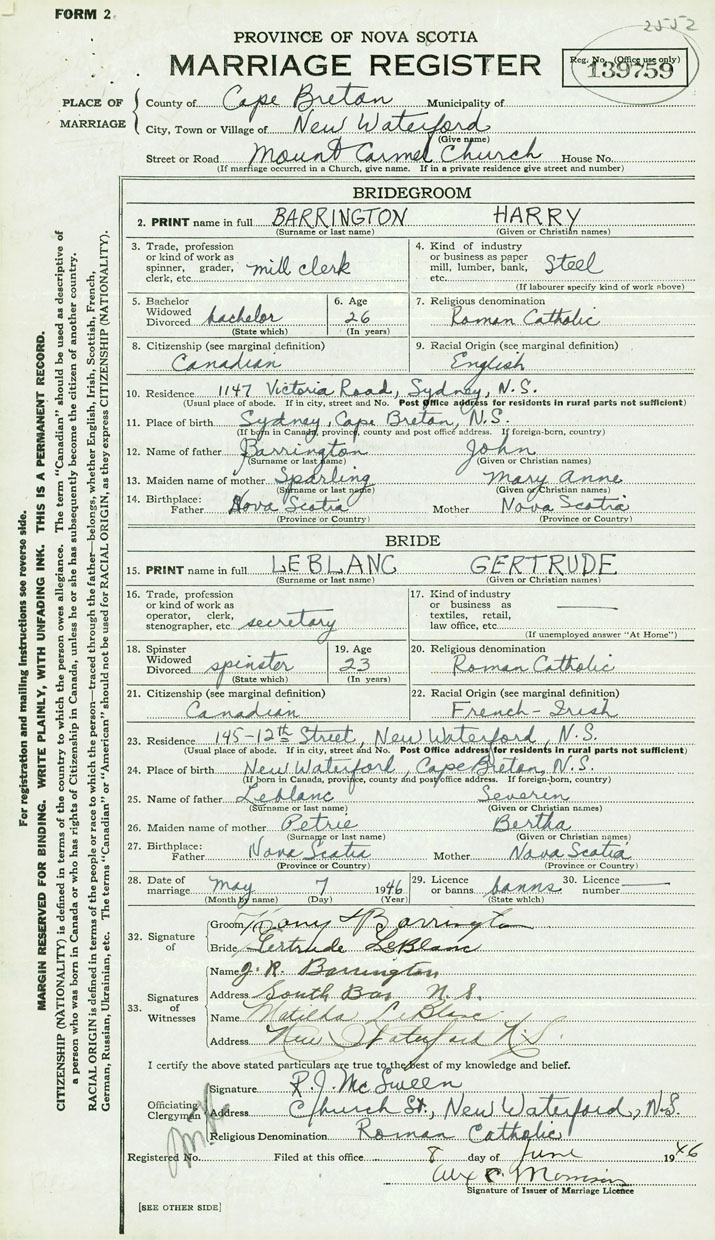 FORM 2
2552
PROVINCE OF NOVA SCOTIA
MARRIAGE REGISTER
Reg. No. (Office use only)
139759
PLACE OF MARRIAGE
County of Cape Breton Municipality of
City, Town or Village of New Waterford
(Give name)
Street or Road Mount Carmel Church House No.
(If marriage occurred in a Church, give name. If in a private residence give street and number)
BRIDEGROOM
2. PRINT name in full BARRINGTON HARRY
(Surname or last name) (Given or Christian names)
3. Trade, profession or kind of work as spinner, grader, clerk, etc. mill clerk
4. Kind of industry or business as paper mill, lumber, bank, etc. Steel
(If labourer specify kind of work above)
5. Bachelor Widowed Divorced bachelor
(State which)
6. Age 26
(In years)
7. Religious denomination
Roman Catholic
8. Citizenship (see marginal definition)
Canadian
9. Racial Origin (see marginal definition)
English
10. Residence 1147 Victoria Road, Sydney, N.S.
(Usual place of abode. If in city, street and No. Post Office address for residents in rural parts not sufficient)
11. Place of birth Sydney, Cape Breton, N.S.
(If born in Canada, province, county and post office address. If foreign-born, country)
12. Name of father Barrington John
(Surname or last name) (Given or Christian names)
13. Maiden name of mother Sparling Mary Anne
(Surname or last name) (Given or Christian names)
14. Birthplace: Father Nova Scotia Mother Nova Scotia
(Province or Country) (Province or Country)
BRIDE
15. PRINT name in full LEBLANC GERTRUDE
(Surname or last name) (Given or Christian names)
16. Trade, profession or kind of work as operator, clerk, stenographer, etc. secretary
17. Kind of industry or business as textiles, retail, law office, etc.
(If unemployed answer "At Home")
18. Spinster Widowed Divorced spinster
(State which)
19. Age 23
(In years)
20. Religious denomination
Roman Catholic
21. Citizenship (see marginal definition)
Canadian
22. Racial Origin (see marginal definition)
French-Irish
23. Residence 145-12th Street, New Waterford, N.S.
(Usual place of abode. If in city, street and No. Post Office address for residents in rural parts not sufficient)
24. Place of birth New Waterford, Cape Breton, N.S.
(If born in Canada, province, county and post office address. If foreign-born, country)
25. Name of father Leblanc Severin
(Surname or last name) (Given or Christian names)
26. Maiden name of mother Petrie Bertha
(Surname or last name) (Given or Christian names)
27. Birthplace: Father Nova Scotia Mother Nova Scotia
(Province or Country) (Province or Country)
28. Date of marriage May 7 1946
(Month by name) (Day) (Year)
29. Licence or banns banns
(State which)
30. Licence number
32. Signature of
Groom Harry Barrington
Bride Gertrude LeBlanc
33. Signatures of Witnesses
Name J. R. Barrington
Address South Bar N.S.
Name Matilda LeBlanc
Address New Waterford N.S.
I certify the above stated particulars are true to the best of my knowledge and belief.
Officiating Clergyman
Signature R. J. McSween
Address Church St., New Waterford, N.S.
Religious Denomination Roman Catholic
Registered No. Filed at this office 8 day of June 1946
Alex C Morrison
Signature of Issuer of Marriage Licence
[SEE OTHER SIDE]
For registration and mailing instructions see reverse side.
MARGIN RESERVED FOR BINDING. WRITE PLAINLY, WITH UNFADING INK. THIS IS A PERMANENT RECORD.
CITIZENSHIP (NATIONALITY) is defined in terms of the country to which the person owes allegiance. The term "Canadian" should be used as descriptive of
a person who was born in Canada or who has rights of Citizenship in Canada, unless he or she has subsequently become the citizen of another country.
RACIAL ORIGIN is defined in terms of the people or race to which the person—traced through the father—belongs, whether English, Irish, Scottish, French,
German, Russian, Ukrainian, etc. The terms "Canadian" or "American" should not be used for RACIAL ORIGIN, as they express CITIZENSHIP (NATIONALITY).